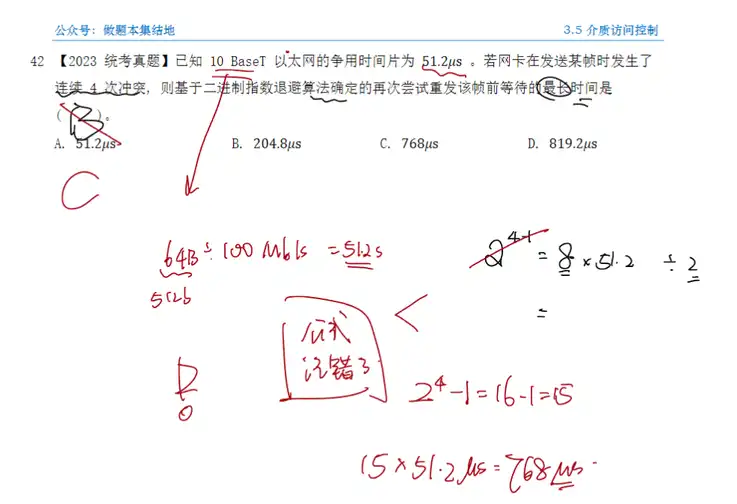 公众号：做题本集结地
3.5 介质访问控制
42 【2023 统考真题】已知 10 BaseT 以太网的争用时间片为 51.2μs 。若网卡在发送某帧时发生了
连续 4 次冲突，则基于二进制指数退避算法确定的再次尝试重发该帧前等待的最长时间是
( B )。
A. 51.2μs B. 204.8μs C. 768μs D. 819.2μs
C
64B ÷ 100 Mb/s = 51.2s
512b
2^4-1 = 8 × 51.2 ÷ 2
=
公式
记错了
2^4 - 1 = 16 - 1 = 15
15 × 51.2 μs = 768 μs